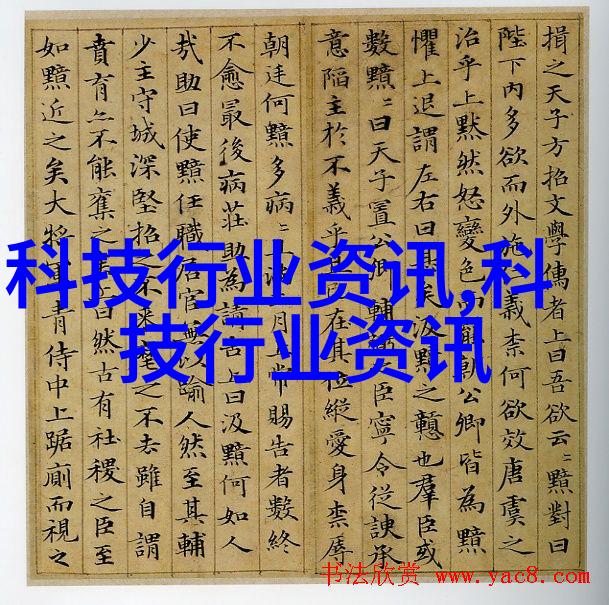 揖之天子方招文學儒者上曰吾欲云〻黯對曰
陛下內多欲而外施義柰何欲效唐虞之
治乎上默然怒變色罷朝公卿皆為黯
懼上退謂左右曰矣汲黯之戇也羣臣或
數黯〻曰天子置公卿輔臣寧令從諛承
意陷主於不義乎在其位縱愛身柰辱
朝廷何黯多病〻滿月上常賜告者數終
不愈最後病莊助為請告上曰汲黯何如人
㦲助曰使黯任職居官無以踰人然至其輔
少主守城深堅招之不来麾之不去雖自謂
賁育亦不能奪之矣上曰然古有社稷之臣至
如黯近之矣大將軍青侍中上踞廁而視之
科技行业资讯,科
技行业资讯
书法欣赏 www.yac8.com